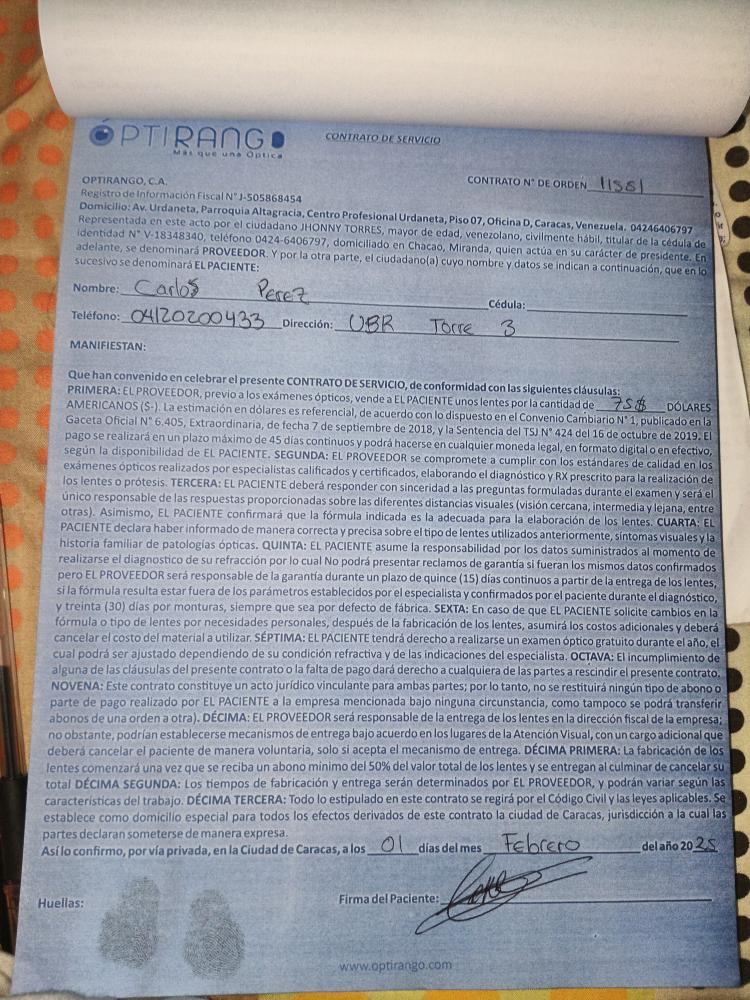 ÓPTIRANGO
Más que una Óptica
CONTRATO DE SERVICIO
OPTIRANGO, C.A.
CONTRATO N° DE ORDEN 11551
Registro de Información Fiscal N° J-505868454
Domicilio: Av. Urdaneta, Parroquia Altagracia, Centro Profesional Urdaneta, Piso 07, Oficina D, Caracas, Venezuela. 04246406797
Representada en este acto por el ciudadano JHONNY TORRES, mayor de edad, venezolano, civilmente hábil, titular de la cédula de
identidad N° V-18348340, teléfono 0424-6406797, domiciliado en Chacao, Miranda, quien actúa en su carácter de presidente. En
adelante, se denominará PROVEEDOR. Y por la otra parte, el ciudadano(a) cuyo nombre y datos se indican a continuación, que en lo
sucesivo se denominará EL PACIENTE:
Nombre: Carlos Perez Cédula:
Teléfono: 04120200433 Dirección: UBR Torre 3
MANIFIESTAN:
Que han convenido en celebrar el presente CONTRATO DE SERVICIO, de conformidad con las siguientes cláusulas:
PRIMERA: EL PROVEEDOR, previo a los exámenes ópticos, vende a EL PACIENTE unos lentes por la cantidad de 75$ DÓLARES
AMERICANOS ($-). La estimación en dólares es referencial, de acuerdo con lo dispuesto en el Convenio Cambiario N° 1, publicado en la
Gaceta Oficial N° 6.405, Extraordinaria, de fecha 7 de septiembre de 2018, y la Sentencia del TSJ N° 424 del 16 de octubre de 2019. El
pago se realizará en un plazo máximo de 45 días continuos y podrá hacerse en cualquier moneda legal, en formato digital o en efectivo,
según la disponibilidad de EL PACIENTE. SEGUNDA: EL PROVEEDOR se compromete a cumplir con los estándares de calidad en los
exámenes ópticos realizados por especialistas calificados y certificados, elaborando el diagnóstico y RX prescrito para la realización de
los lentes o prótesis. TERCERA: EL PACIENTE deberá responder con sinceridad a las preguntas formuladas durante el examen y será el
único responsable de las respuestas proporcionadas sobre las diferentes distancias visuales (visión cercana, intermedia y lejana, entre
otras). Asimismo, EL PACIENTE confirmará que la fórmula indicada es la adecuada para la elaboración de los lentes. CUARTA: EL
PACIENTE declara haber informado de manera correcta y precisa sobre el tipo de lentes utilizados anteriormente, síntomas visuales y la
historia familiar de patologías ópticas. QUINTA: EL PACIENTE asume la responsabilidad por los datos suministrados al momento de
realizarse el diagnostico de su refracción por lo cual No podrá presentar reclamos de garantía si fueran los mismos datos confirmados
pero EL PROVEEDOR será responsable de la garantía durante un plazo de quince (15) días continuos a partir de la entrega de los lentes,
si la fórmula resulta estar fuera de los parámetros establecidos por el especialista y confirmados por el paciente durante el diagnóstico,
y treinta (30) días por monturas, siempre que sea por defecto de fábrica. SEXTA: En caso de que EL PACIENTE solicite cambios en la
fórmula o tipo de lentes por necesidades personales, después de la fabricación de los lentes, asumirá los costos adicionales y deberá
cancelar el costo del material a utilizar. SÉPTIMA: EL PACIENTE tendrá derecho a realizarse un examen óptico gratuito durante el año, el
cual podrá ser ajustado dependiendo de su condición refractiva y de las indicaciones del especialista. OCTAVA: El incumplimiento de
alguna de las cláusulas del presente contrato o la falta de pago dará derecho a cualquiera de las partes a rescindir el presente contrato.
NOVENA: Este contrato constituye un acto jurídico vinculante para ambas partes; por lo tanto, no se restituirá ningún tipo de abono o
parte de pago realizado por EL PACIENTE a la empresa mencionada bajo ninguna circunstancia, como tampoco se podrá transferir
abonos de una orden a otra). DÉCIMA: EL PROVEEDOR será responsable de la entrega de los lentes en la dirección fiscal de la empresa;
no obstante, podrían establecerse mecanismos de entrega bajo acuerdo en los lugares de la Atención Visual, con un cargo adicional que
deberá cancelar el paciente de manera voluntaria, solo si acepta el mecanismo de entrega. DÉCIMA PRIMERA: La fabricación de los
lentes comenzará una vez que se reciba un abono mínimo del 50% del valor total de los lentes y se entregan al culminar de cancelar su
total DÉCIMA SEGUNDA: Los tiempos de fabricación y entrega serán determinados por EL PROVEEDOR, y podrán variar según las
características del trabajo. DÉCIMA TERCERA: Todo lo estipulado en este contrato se regirá por el Código Civil y las leyes aplicables. Se
establece como domicilio especial para todos los efectos derivados de este contrato la ciudad de Caracas, jurisdicción a la cual las
partes declaran someterse de manera expresa.
Así lo confirmo, por vía privada, en la Ciudad de Caracas, a los 01 días del mes Febrero del año 2025
Huellas:
Firma del Paciente:
www.optirango.com